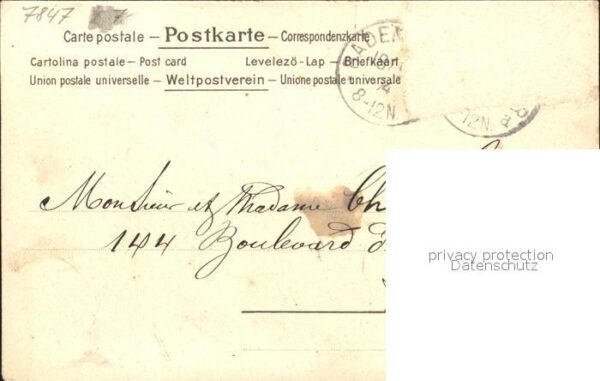 7847
Carte postale – Postkarte – Correspondenzkarte
Cartolina postale – Post card Levelezö-Lap – Briefkaart
Union postale universelle – Weltpostverein – Unione postale universale
BADEN
8-12N.
12N.
Monsieur et Madame Ch
144 Boulevard d
privacy protection
Datenschutz